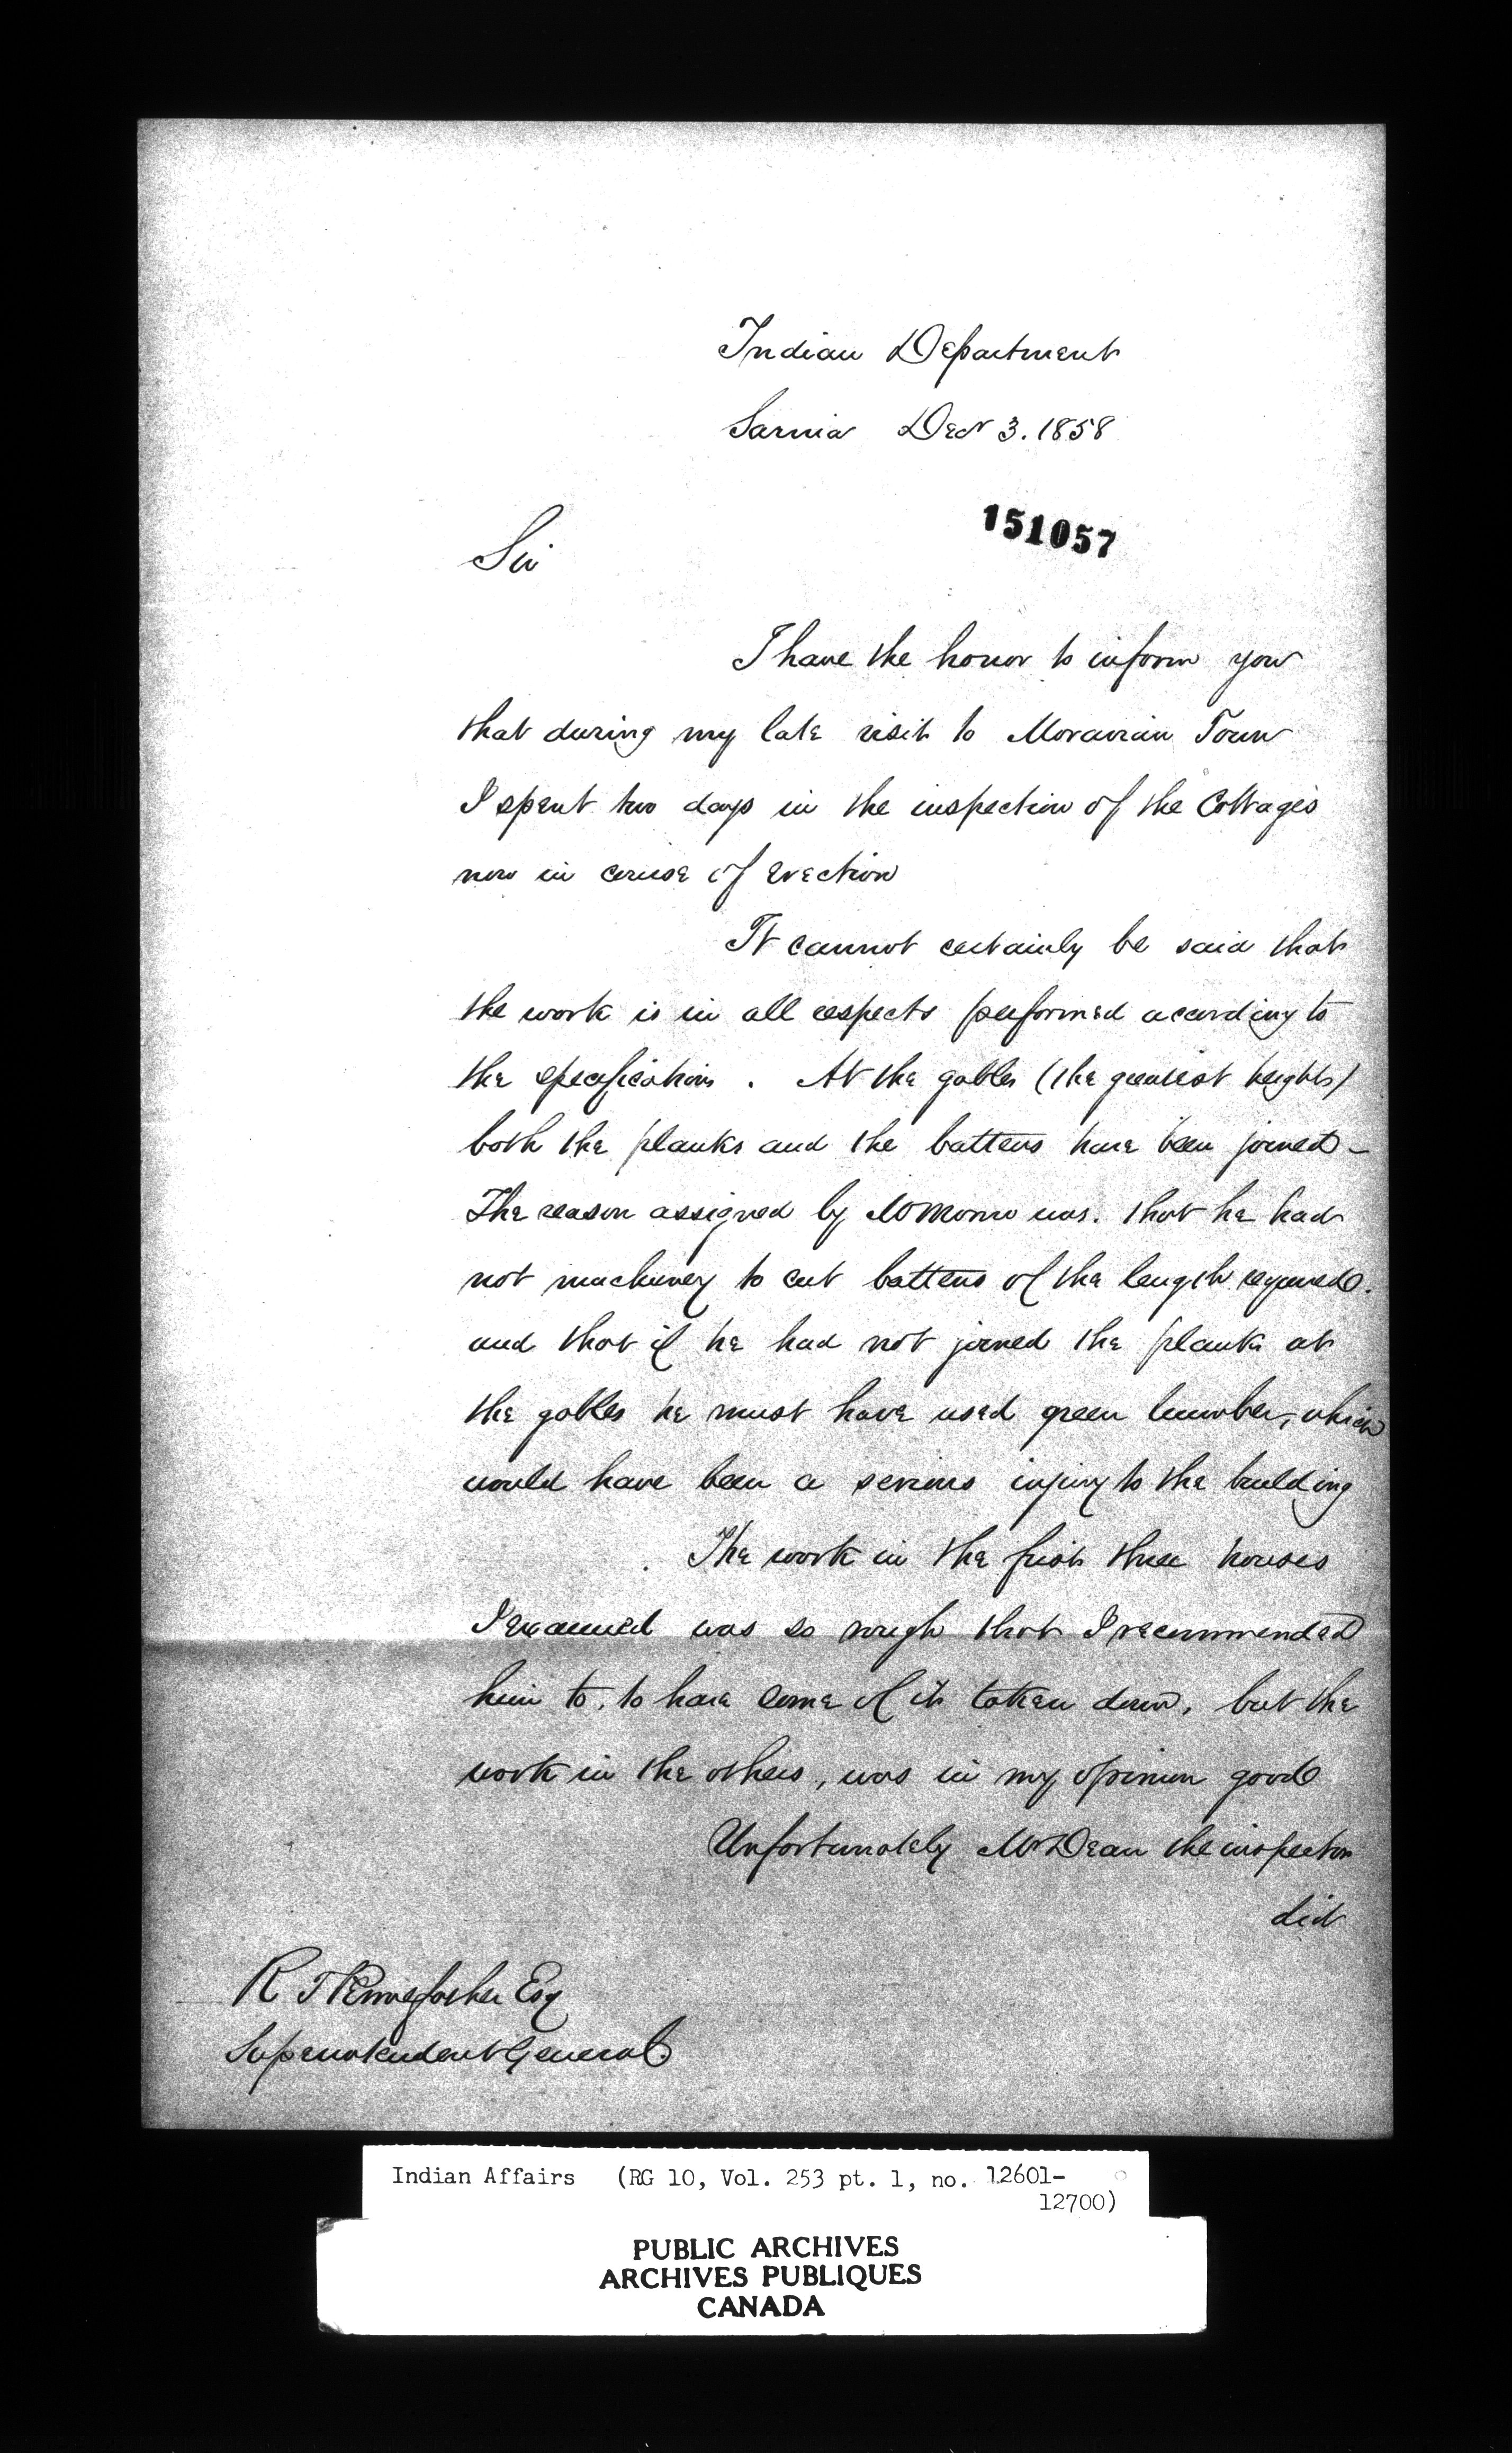 Indian Department
Sarnia Decr 3. 1858
151057
Sir
I have the honor to inform you
that during my late visit to Moravian Town
I spent two days in the inspection of the Cottages
now in course of erection
It cannot certainly be said that
the work is in all respects performed according to
the specifications . At the gables (the greatest heights)
both the planks and the battens have been joined -
The reason assigned by was. that he had
not machinery to cut battens of the length required.
and that if he had not joined the planks at
the gables he must have used green lumber, which
would have been a serious injury to the building
The work in the first three houses
I examined was so rough that I recommended
him to, to have some of it taken down, but the
work in the others, was in my opinion good
Unfortunately Mr Dean the inspector
did
R T Pennefather Esq
Superintendent General.
Indian Affairs (RG 10, Vol. 253 pt. 1, no. 12601-
12700)
PUBLIC ARCHIVES
ARCHIVES PUBLIQUES
CANADA